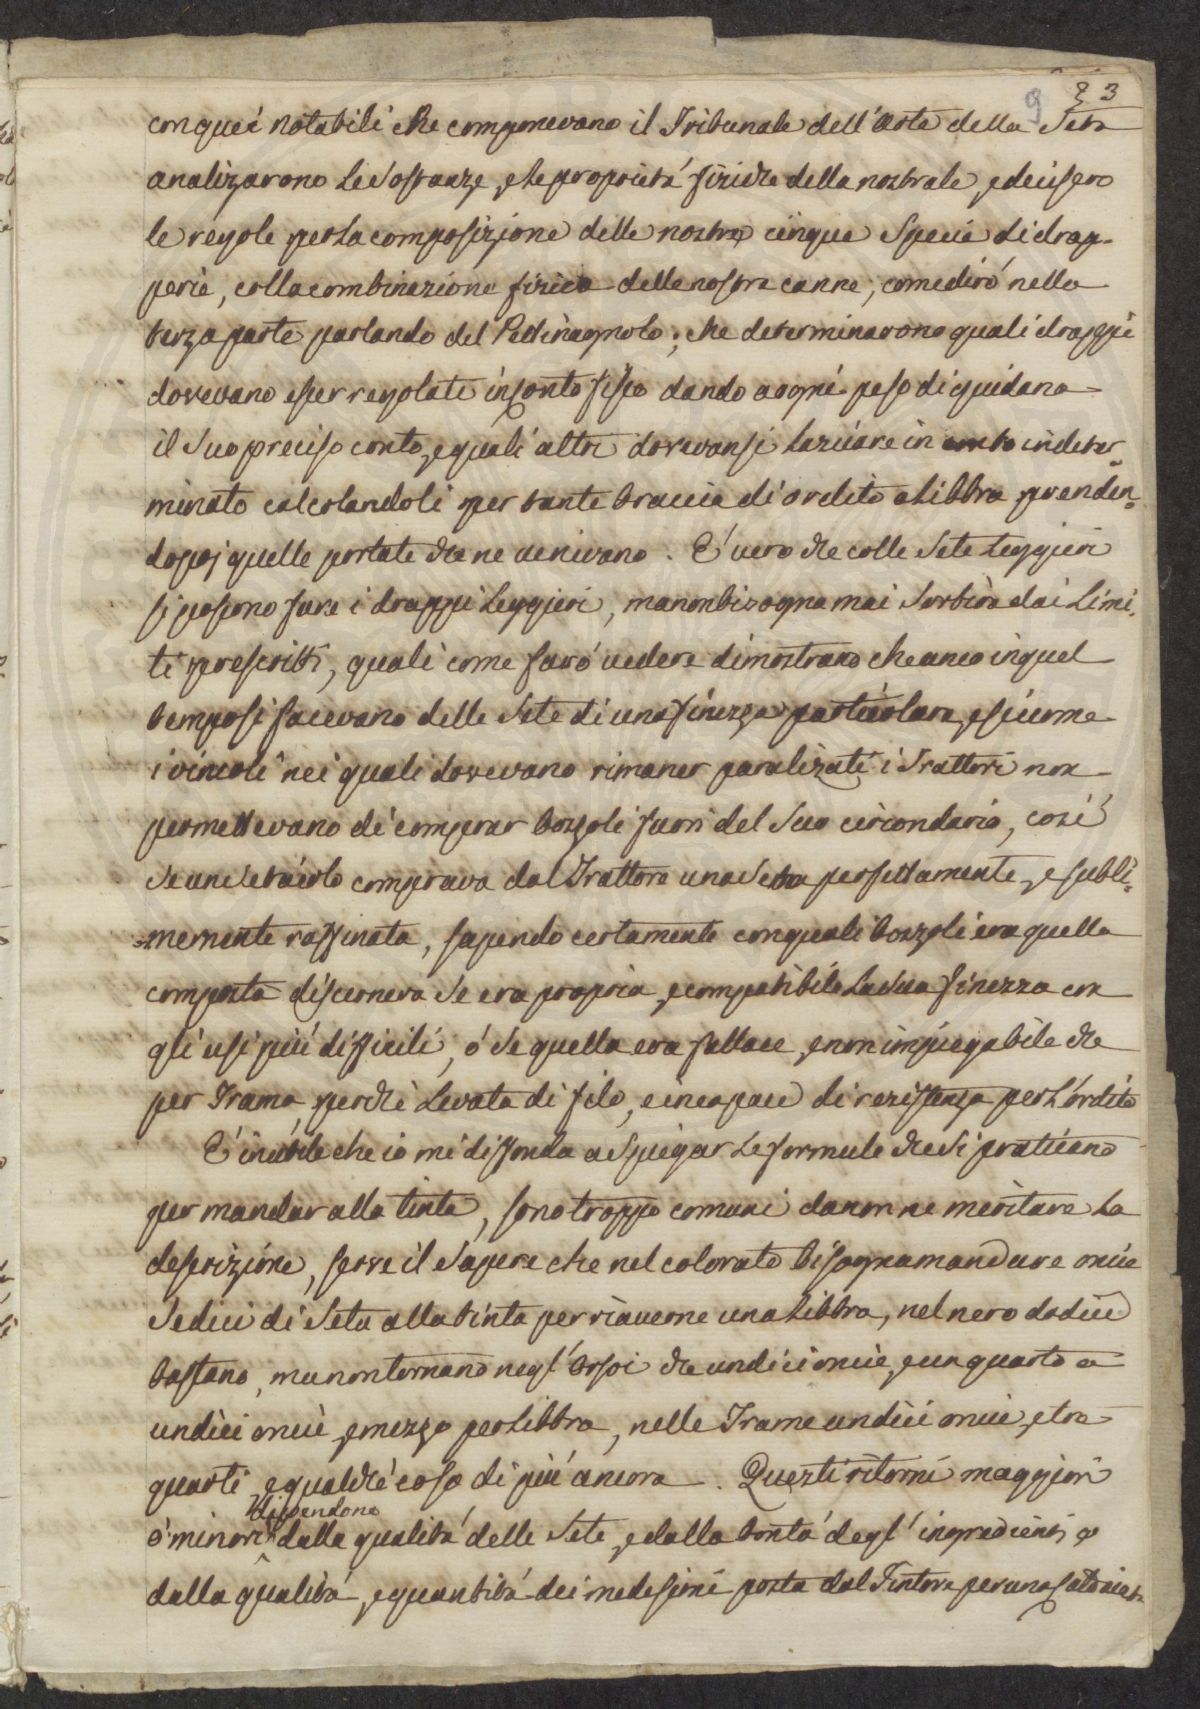 9 23
con quei notabili che componevano il Tribunale dell'Arte della Seta
analizarono le Sostanze, e le proprietá fisiche della nostrale, e decisero
le regole per la composizione delle nostre cinque Specie di drap-
perie, colla combinazione fisica delle nostre canne, come dirò nella
terza parte parlando del Pettinagnolo; che determinarono quali drappi
dovevano esser regolati in conto fisso dando a ogni peso di guidana
il Suo preciso conto, e quali altri dovevansi lasciare in conto indeter=
minato calcolandoli per tante braccia di ordito a Libbra prenden=
dosi poi quelle portate che ne venivano. E' vero che colle Sete Leggieri
si possono fare i drappi Leggieri, ma non bisogna mai Sortire dai Limi=
ti prescritti, quali come faró vedere dimostrano che anco in quel
tempo si facevano delle Sete di una finezza particolare, e siccome
i vincoli nei quali dovevano rimaner paralizati i Trattori non
permettevano di comprar bozzoli fuori del Suo circondario, cosi
Se un Setaiolo comprava dal Trattore una Seta perfettamente, e subli=
=memente raffinata, sapendo certamente con quali bozzoli era quella
composta discerneva Se era propria, e compatibile la Sua finezza con
gli usi piú difficili, ó Se quella era fallace, e non impiegabile che
per Trama, perchè Levata di filo, e incapace di resistenza per L'ordito
E' inutile che io mi diffonda a Spiegar le formule che Si praticano
per mandar alla tinta, sono troppo comuni da non ne meritare la
descrizione, serve il Sapere che nel colorato bisogna mandare oncie
Sedici di Seta alla tinta per riaverne una Libbra, nel nero dodici
bastano, ma non tornano negl'Orsoi che undici oncie, e un quarto a
undici oncie, e mezzo per Libbra, nelle Trame undici oncie, e tre
quarti, e qualche cosa di piú ancora. Questi ritorni maggiori
dipendono
ó minori dalla qualitá delle Sete, e dalla bontá degl'ingredienti, e
dalla qualitá, e quantitá dei medesimi posta dal Tintore per una